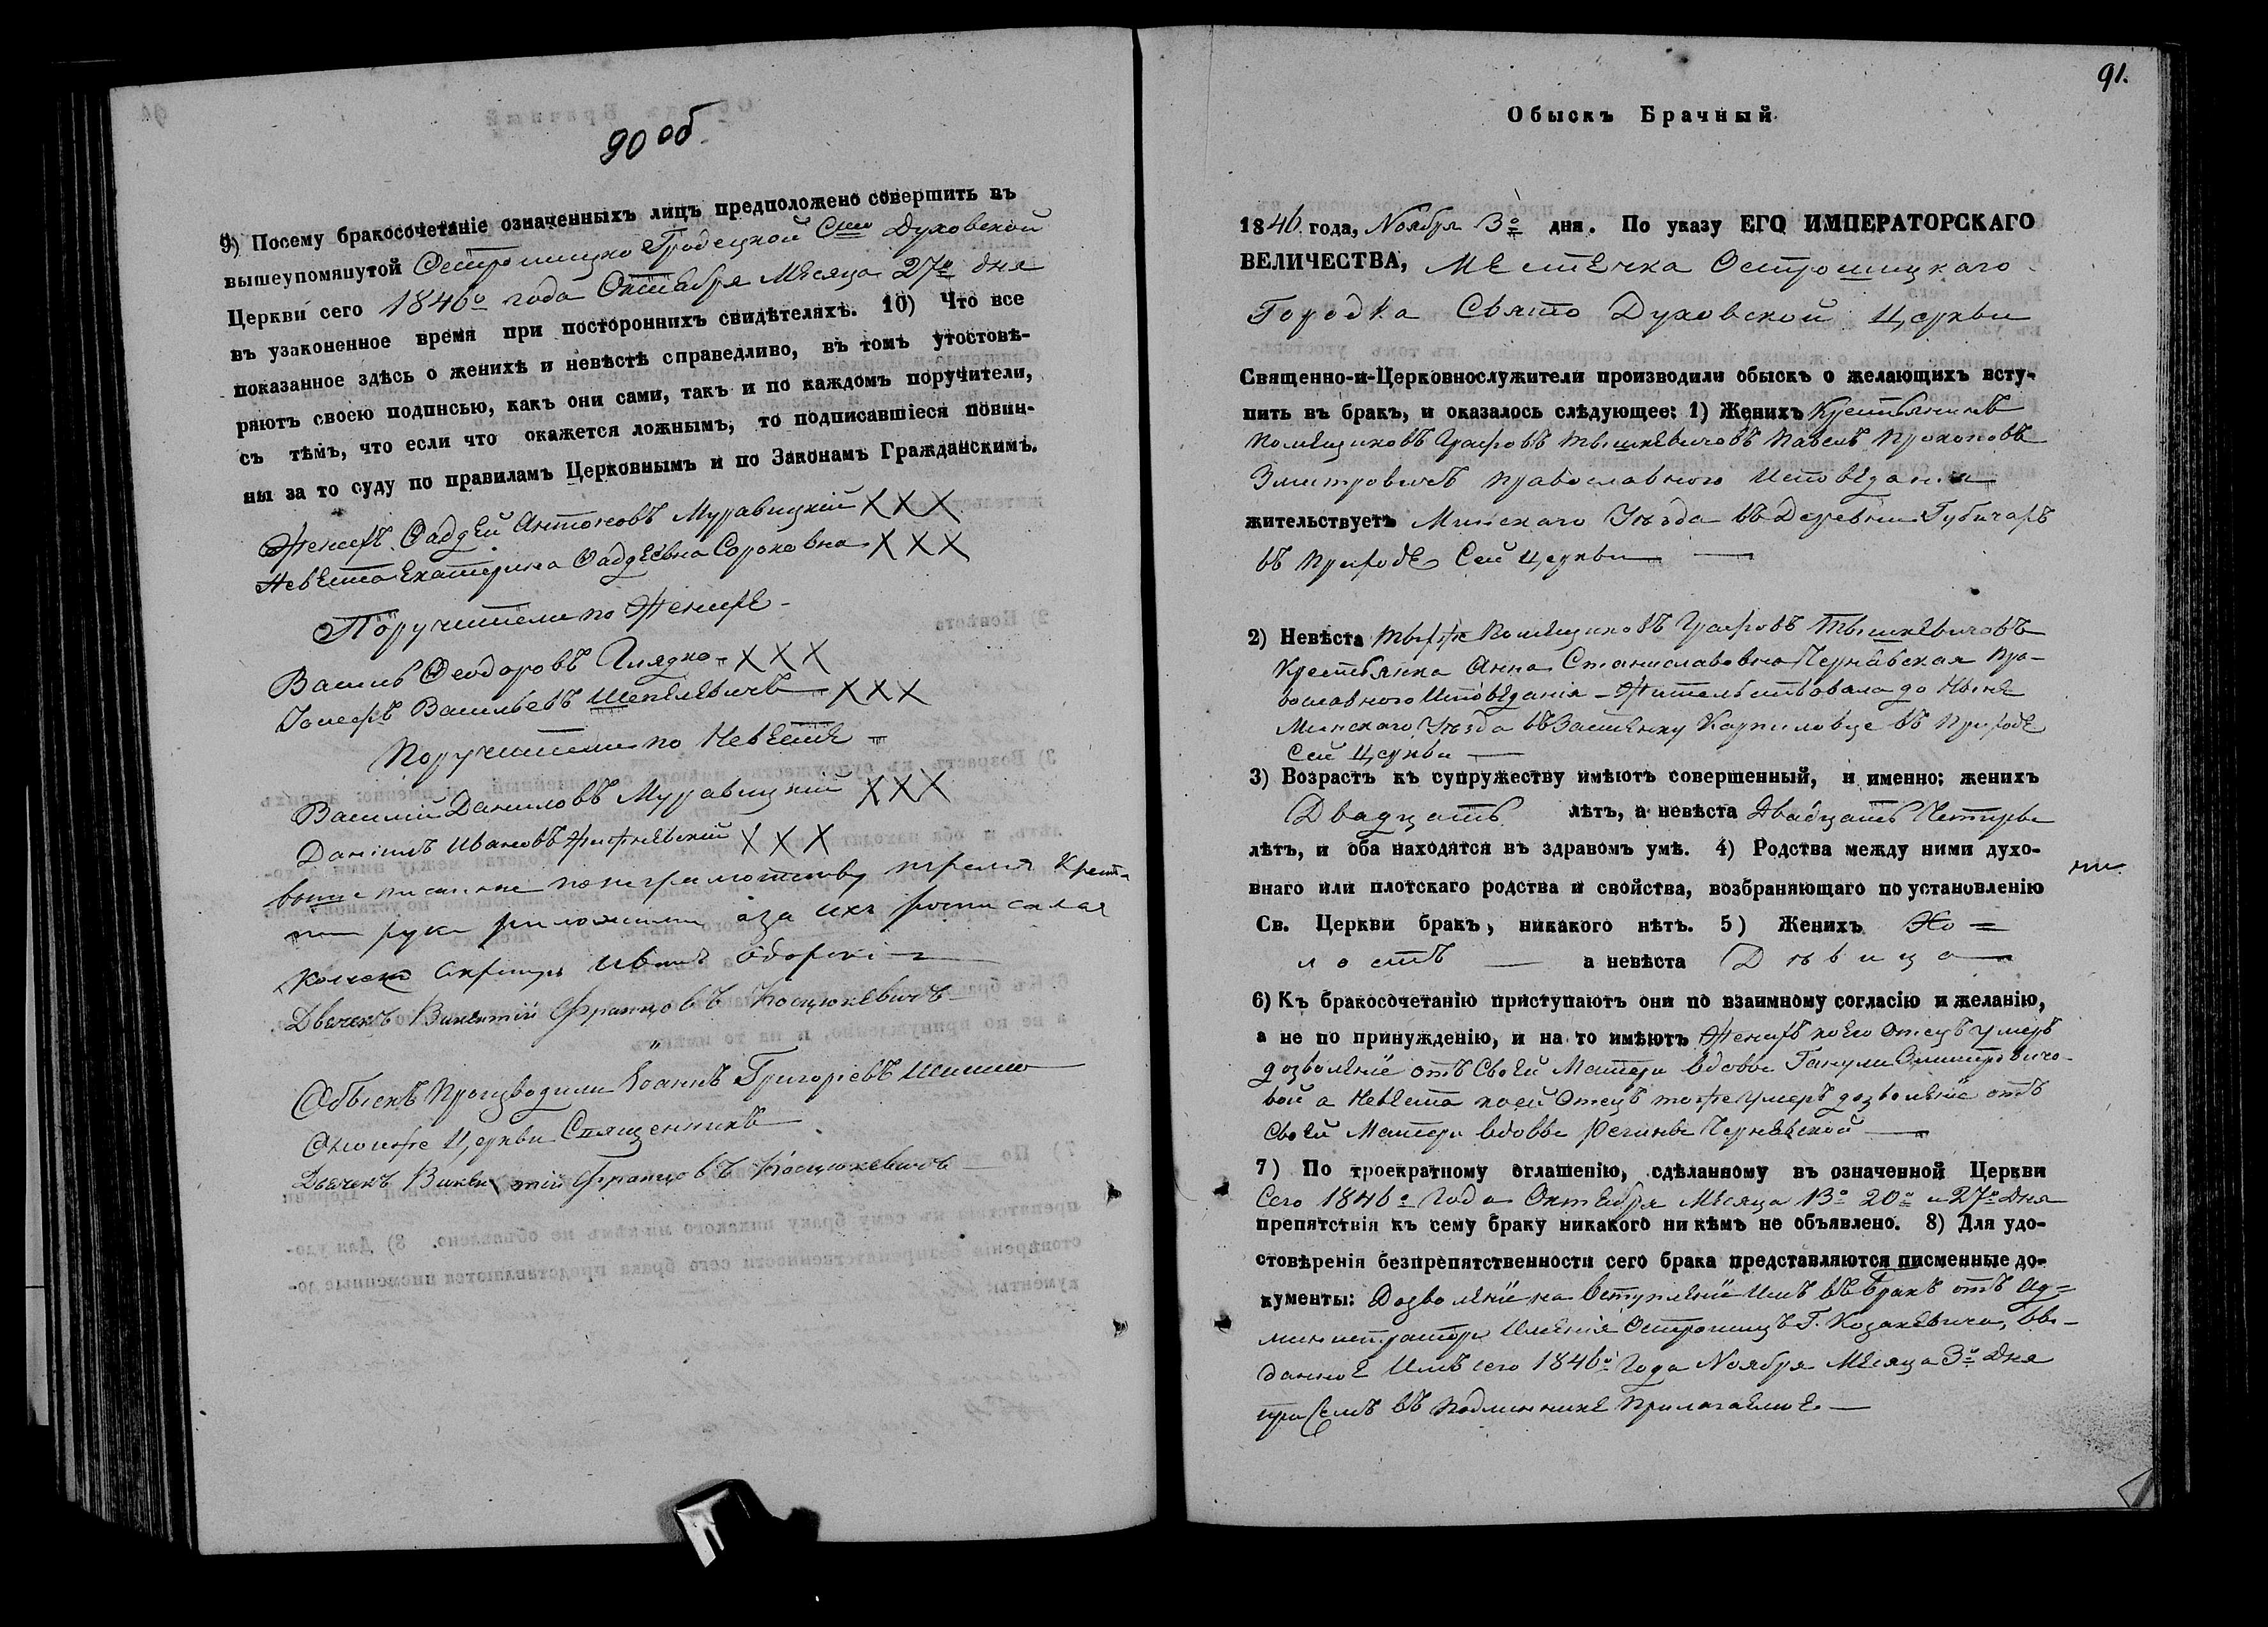 90 об.
9) Посему бракосочетаніе означенныхъ лицъ предположено совершить въ
вышеупомянутой Острошицко Гродецкой Сто Духовской
Церкви сего 1846о года Октября Месяца 27о дня
въ узаконенное время при постороннихъ свидѣтеляхъ. 10) Что все
показанное здѣсь о женихѣ и невѣстѣ справедливо, въ томъ утостовѣ-
ряютъ своею подписью, какъ они сами, такъ и по каждомъ поручители,
съ тѣмъ, что если что окажется ложнымъ, то подписавшіеся повин-
ны за то суду по правиламъ Церковнымъ и по Законамъ Гражданскимъ.
Женихъ Фаддей Антоновъ Муравицкій XXX
Невеста Екатерина Фаддеевна Сороковна XXX
Поручители по Женихе
Василь Феодоровъ Глядко XXX
Іосифъ Васильевъ Шепелевичъ XXX
Поручители по Невесте
Василій Даниловъ Муравицкій XXX
Даніилъ Ивановъ XXX
выше писанные по неграмотству тремя крест-
ми руки а за ихъ росписался
Иванъ
Дьячекъ Викентій Францовъ Костюкевичъ
Обыскъ Производили Іоаннъ Григоріевъ
Оной же Церкви Священникъ
Дьячекъ Викентій Францовъ Костюкевичъ
91.
Обыскъ Брачный
1846 года, Ноября 3о дня. По указу ЕГО ИМПЕРАТОРСКАГО
ВЕЛИЧЕСТВА, Местечка Острошицкаго
Городка Свято Духовской Церкви
Священно-и-Церковнослужители производили обыскъ о желающихъ всту-
пить въ бракъ, и оказалось слѣдующее: 1) Женихъ Крестьянинъ
Помещиковъ Графовъ Тышкевичовъ Павелъ Прокоповъ
Змитровичъ Православного Исповеданія
жительствуетъ Минскаго Уѣзда въ Деревни Губичахъ
въ Приходе Сей Церкви
2) Невѣста техже Помещиковъ Графовъ Тышкевичовъ
Крестьянка Анна Станиславовна Чернявская Пра-
вославного Исповеданія Жительствовала до Ныне
Минскаго Уѣзда въ Застенку Карпиловце въ Приходе
Сей Церкви
3) Возрастъ къ супружеству имѣютъ совершенный, и именно: женихъ
Двадцать лѣтъ, а невѣста Двадцать Четыре
лѣтъ, и оба находятся въ здравомъ умѣ. 4) Родства между ними духо-
внаго или плотскаго родства и свойства, возбраняющаго по установленію
Св. Церкви бракъ, никакого нѣтъ. 5) Женихъ Хо=
лостъ а невѣста Дѣвица
6) Къ бракосочетанію приступаютъ они по взаимному согласію и желанію,
а не по принужденію, и на то имѣютъ Женихъ коего Отецъ умеръ
дозволеніе отъ Своей Матери вдовы Ганули Змитровичо-
вой а Невеста коей Отецъ тоже умеръ дозволеніе отъ
Своей Матери вдовы Регины Чернявской
7) По троекратному оглашенію, сдѣланному въ означенной Церкви
Сего 1846о Года Октября Месяца 13о 20о и 27о Дня
препятствія къ сему браку никакого ни кѣмъ не объявлено. 8) Для удо-
стовѣренія безпрепятственности сего брака представляются писменные до-
кументы: Дозволеніе на Вступленіе Имъ въ Бракъ отъ Ад=
министратора Именія Острошицъ Г. Козакевича, вы-
данное Имъ сего 1846о Года Ноября Месяца 3о Дня
при Семъ въ Подлиннике Прилагаемое.